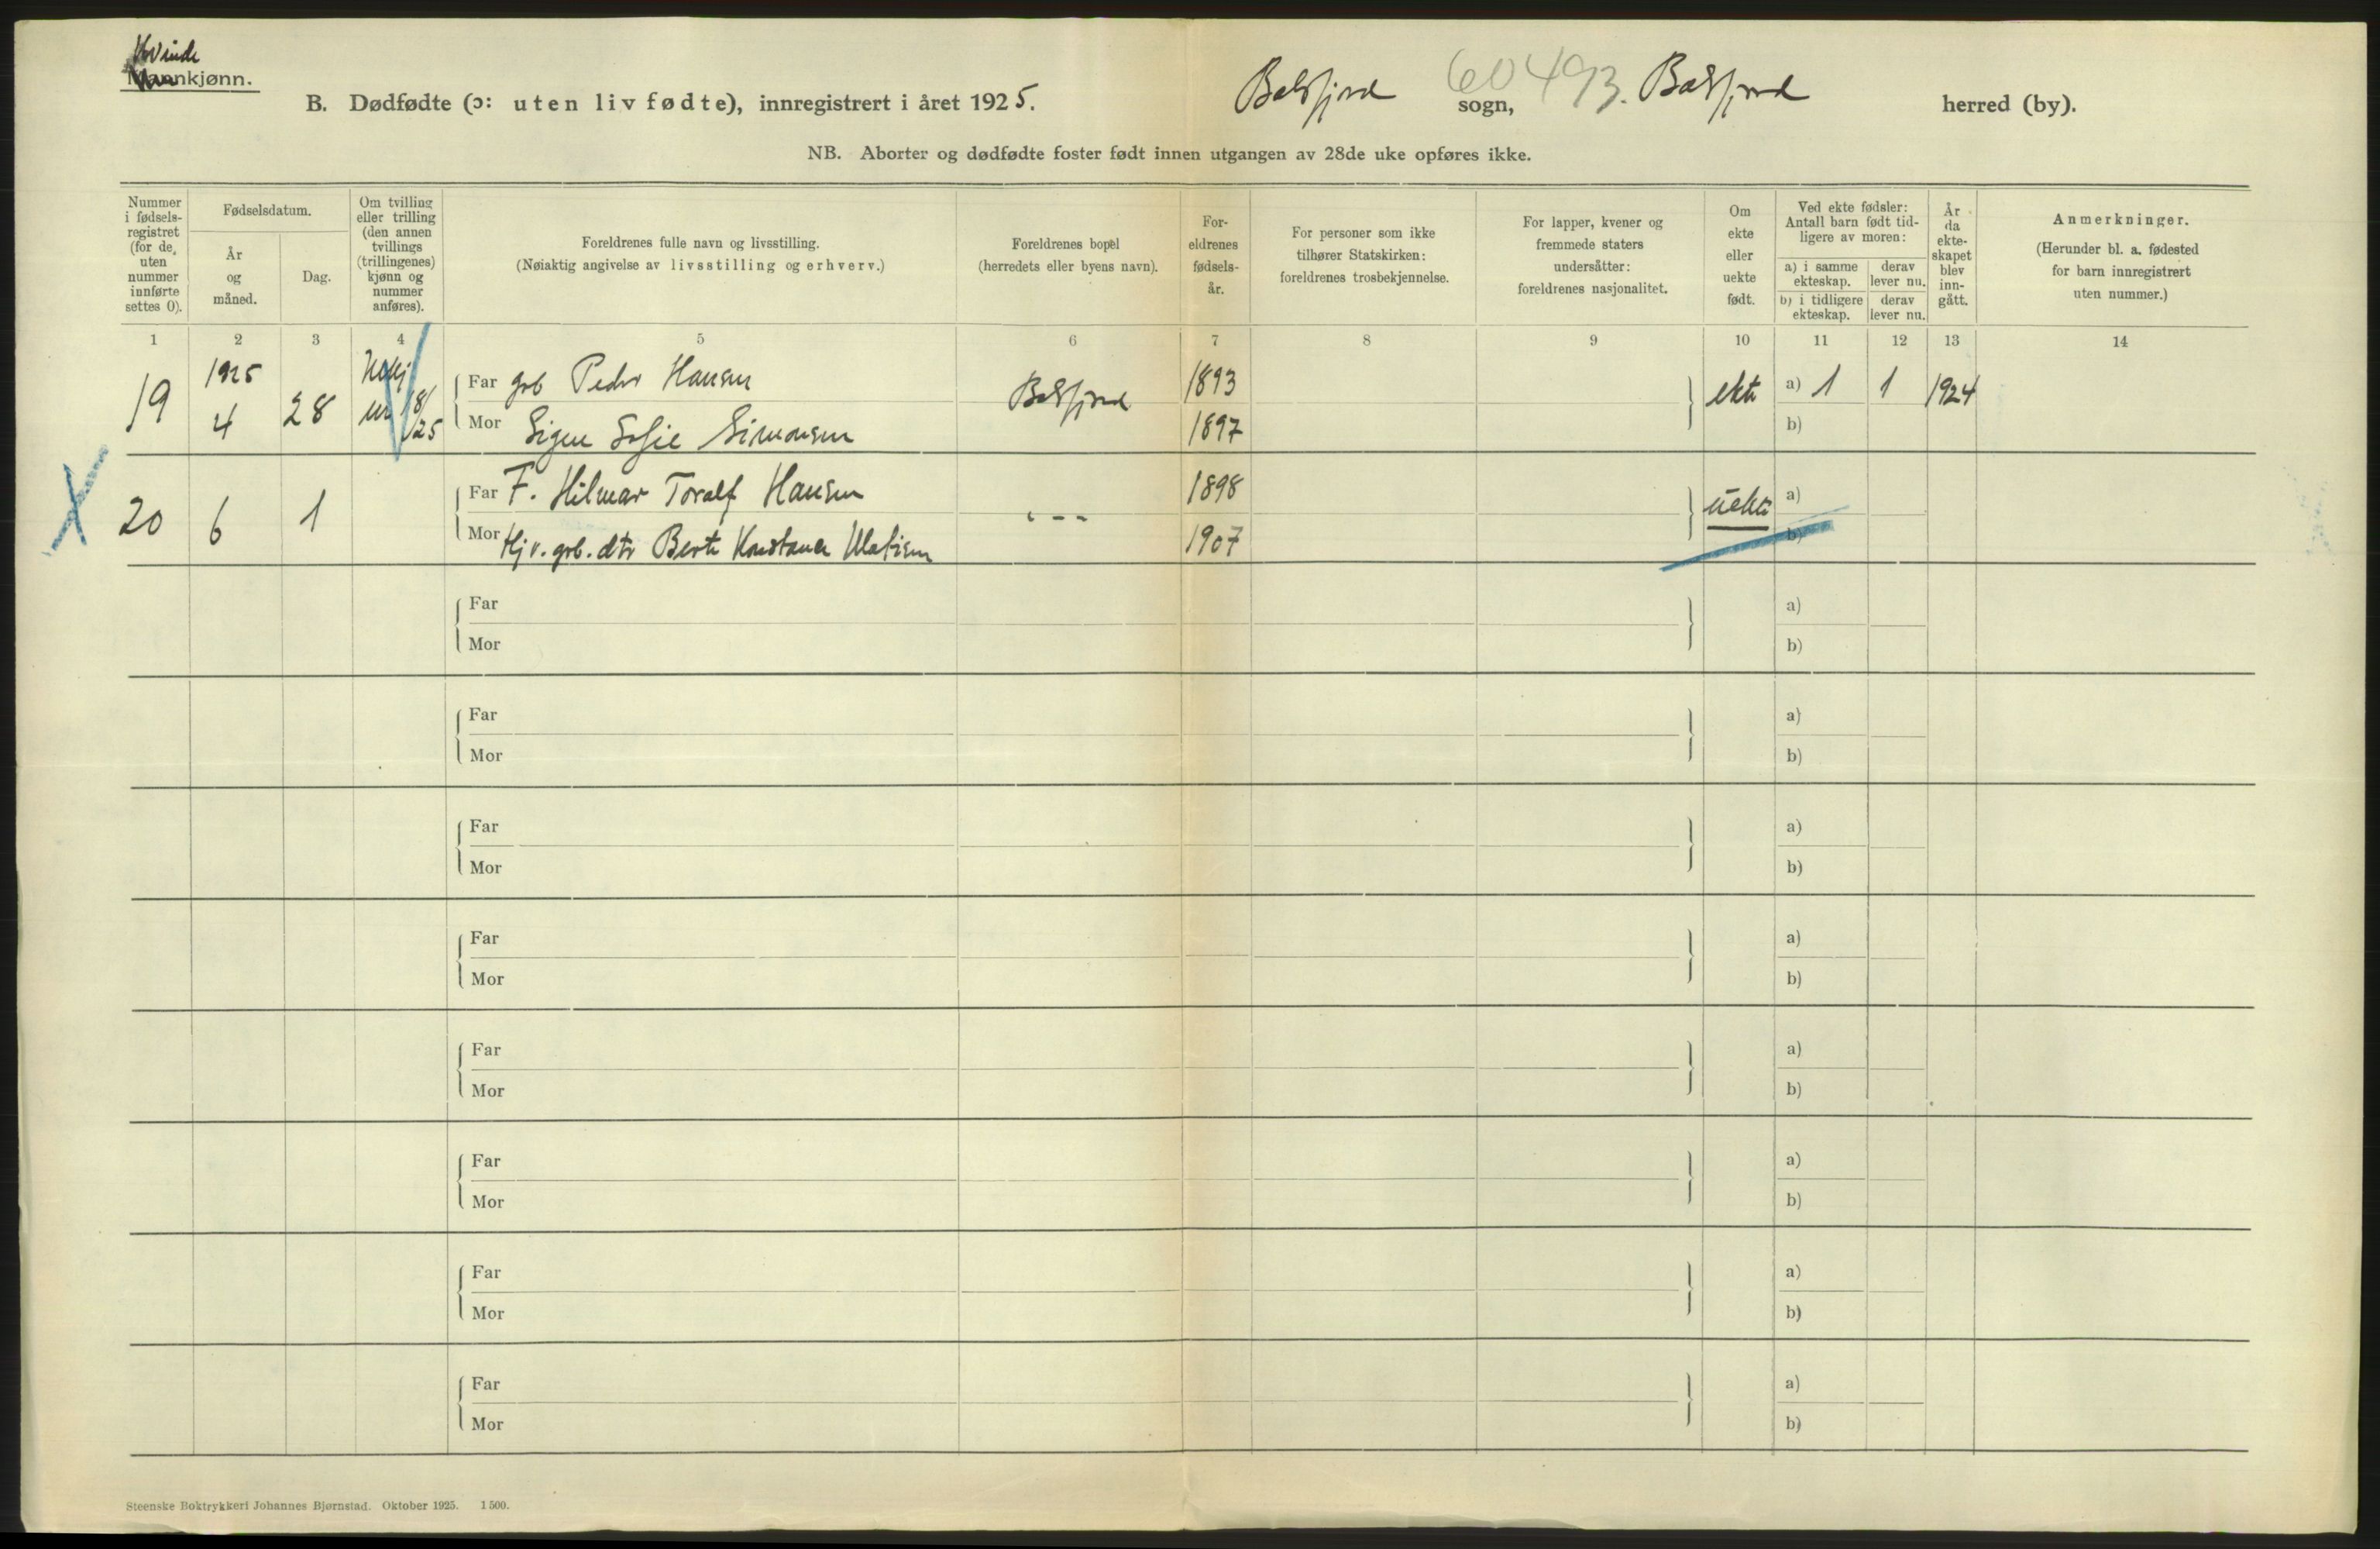 Kvinde
Mannkjønn.
B. Dødfødte (ɔ: uten liv fødte), innregistrert i året 1925. Balsfjord sogn, 60 493. Balsfjord herred (by).
NB. Aborter og dødfødte foster født innen utgangen av 28de uke opføres ikke.
Nummer i fødsels-registret (for de uten nummer innførte settes 0).
Fødselsdatum.
År og måned.
Dag.
Om tvilling eller trilling (den annen tvillings (trillingenes) kjønn og nummer anføres).
Foreldrenes fulle navn og livsstilling.
(Nøiaktig angivelse av livsstilling og erhverv.)
Foreldrenes bopel
(herredets eller byens navn).
For-eldrenes fødsels-år.
For personer som ikke tilhører Statskirken: foreldrenes trosbekjennelse.
For lapper, kvener og fremmede staters undersåtter: foreldrenes nasjonalitet.
Om ekte eller uekte født.
Ved ekte fødsler: Antall barn født tid-ligere av moren:
a) i samme ekteskap. derav lever nu.
b) i tidligere ekteskap. derav lever nu.
År da ekte-skapet blev inn-gått.
Anmerkninger.
(Herunder bl. a. fødested for barn innregistrert uten nummer.)
1 2 3 4 5 6 7 8 9 10 11 12 13 14
19 1925 4 28 nr 18/25 Far grb Peder Hansen Balsfjord 1893 ekte a) 1 1 1924
Mor Signe Sofie Simonsen 1897 b)
20 6 1 Far F. Hilmar Toralf Hansen - - - 1898 uekte a)
Mor Hj v. grb. dtr Berte Konstance Matisen 1907 b)
Far a)
Mor b)
Far a)
Mor b)
Far a)
Mor b)
Far a)
Mor b)
Far a)
Mor b)
Far a)
Mor b)
Far a)
Mor b)
Far a)
Mor b)
Steenske Boktrykkeri Johannes Bjørnstad. Oktober 1925. 1500.